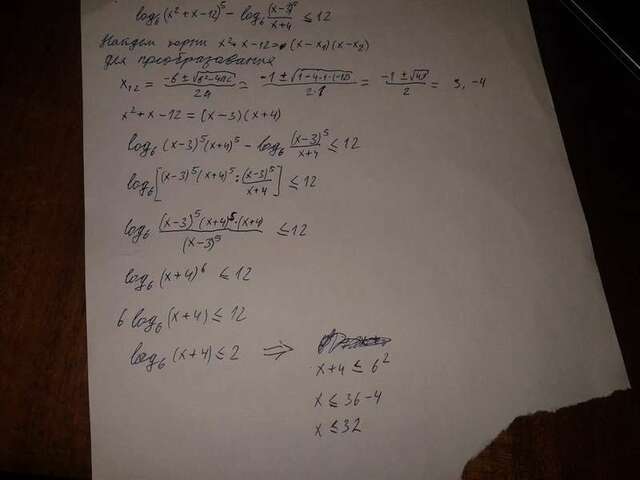 log₆(x²+x-12)⁵ - log₆ (x-3)⁵/(x+4) ≤ 12
Найдем корни x²+x-12=(x-x₁)(x-x₂)
для преобразования
x₁,₂ = (-b ± √(b²-4ac))/2a = (-1 ± √(1-4·1·(-12)))/(2·1) = (-1 ± √49)/2 = 3, -4
x²+x-12 = (x-3)(x+4)
log₆ (x-3)⁵(x+4)⁵ - log₆ (x-3)⁵/(x+4) ≤ 12
log₆[(x-3)⁵(x+4)⁵ : (x-3)⁵/(x+4)] ≤ 12
log₆ ((x-3)⁵(x+4)⁵·(x+4))/(x-3)⁵ ≤ 12
log₆ (x+4)⁶ ≤ 12
6 log₆ (x+4) ≤ 12
log₆ (x+4) ≤ 2 ⇒
x+4 ≤ 6²
x ≤ 36-4
x ≤ 32